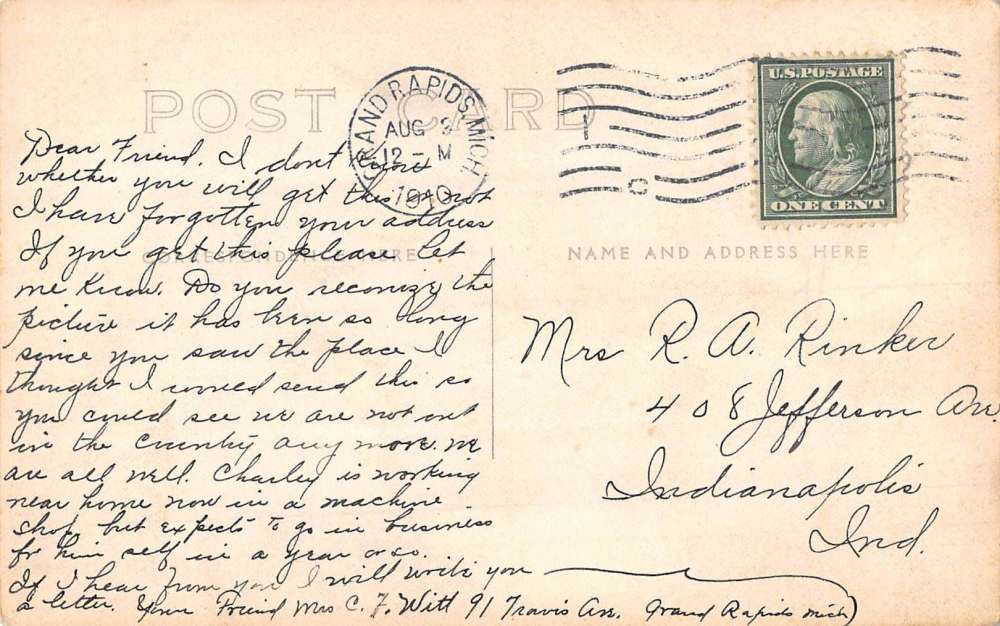 POST CARD
GRAND RAPIDS, MICH.
AUG 9
12 - M
1910
U.S. POSTAGE
ONE CENT
Dear Friend, I dont know
whether you will get this or not
I have forgotten your address
If you get this please let
me Know. Do you reconize the
picture it has been so long
since you saw the place I
thought I would send this so
you could see we are not out
in the country any more. we
are all well. Charley is working
near home now in a machine
shop, but expects to go in business
for him self in a year or so.
If I hear from you I will write you
a letter. Your Friend Mrs C. F. Witt 91 Travis Ave. Grand Rapids Mich
CORRESPONDENCE HERE
NAME AND ADDRESS HERE
Mrs R. A. Rinker
408 Jefferson Av.
Indianapolis
Ind.